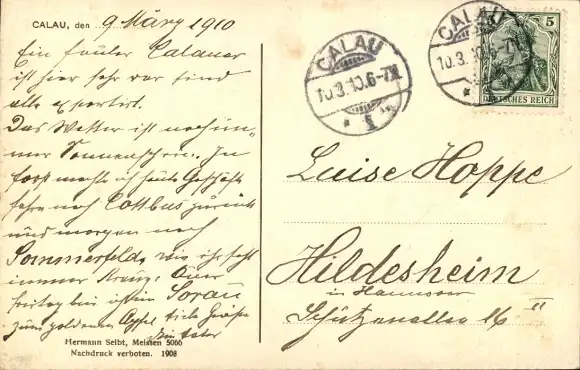 CALAU, den 9 März 1910
Ein Calauer
ist hier sehr
alle exportirt.
Das Wetter ist noch im-
mer Sonnenschein. In
Forst machte ich heute Geschäfte
fahre nach Cottbus zurück
und morgen nach
Sommerfeld,
immer
Freitag bin ich in Sorau
zum goldenen Apfel Grüße
Hermann Seibt, Meissen 5066
Nachdruck verboten. 1908
CALAU
10.3.10.6-7N.
* 1
CALAU
10.3.10.6-7N.
5
DEUTSCHES REICH
Luise Hoppe
Hildesheim
in Hannover
Schützenallee 16 II